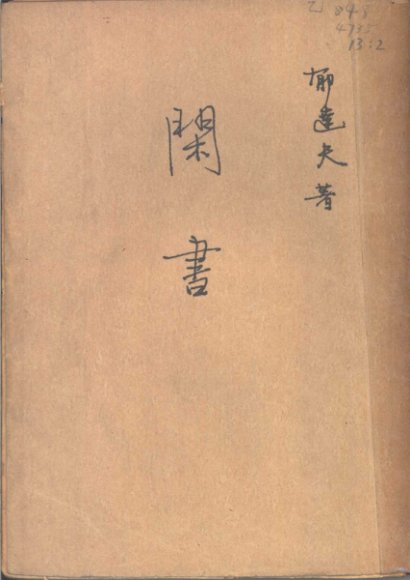 848
13:2
郁達夫著
閑書